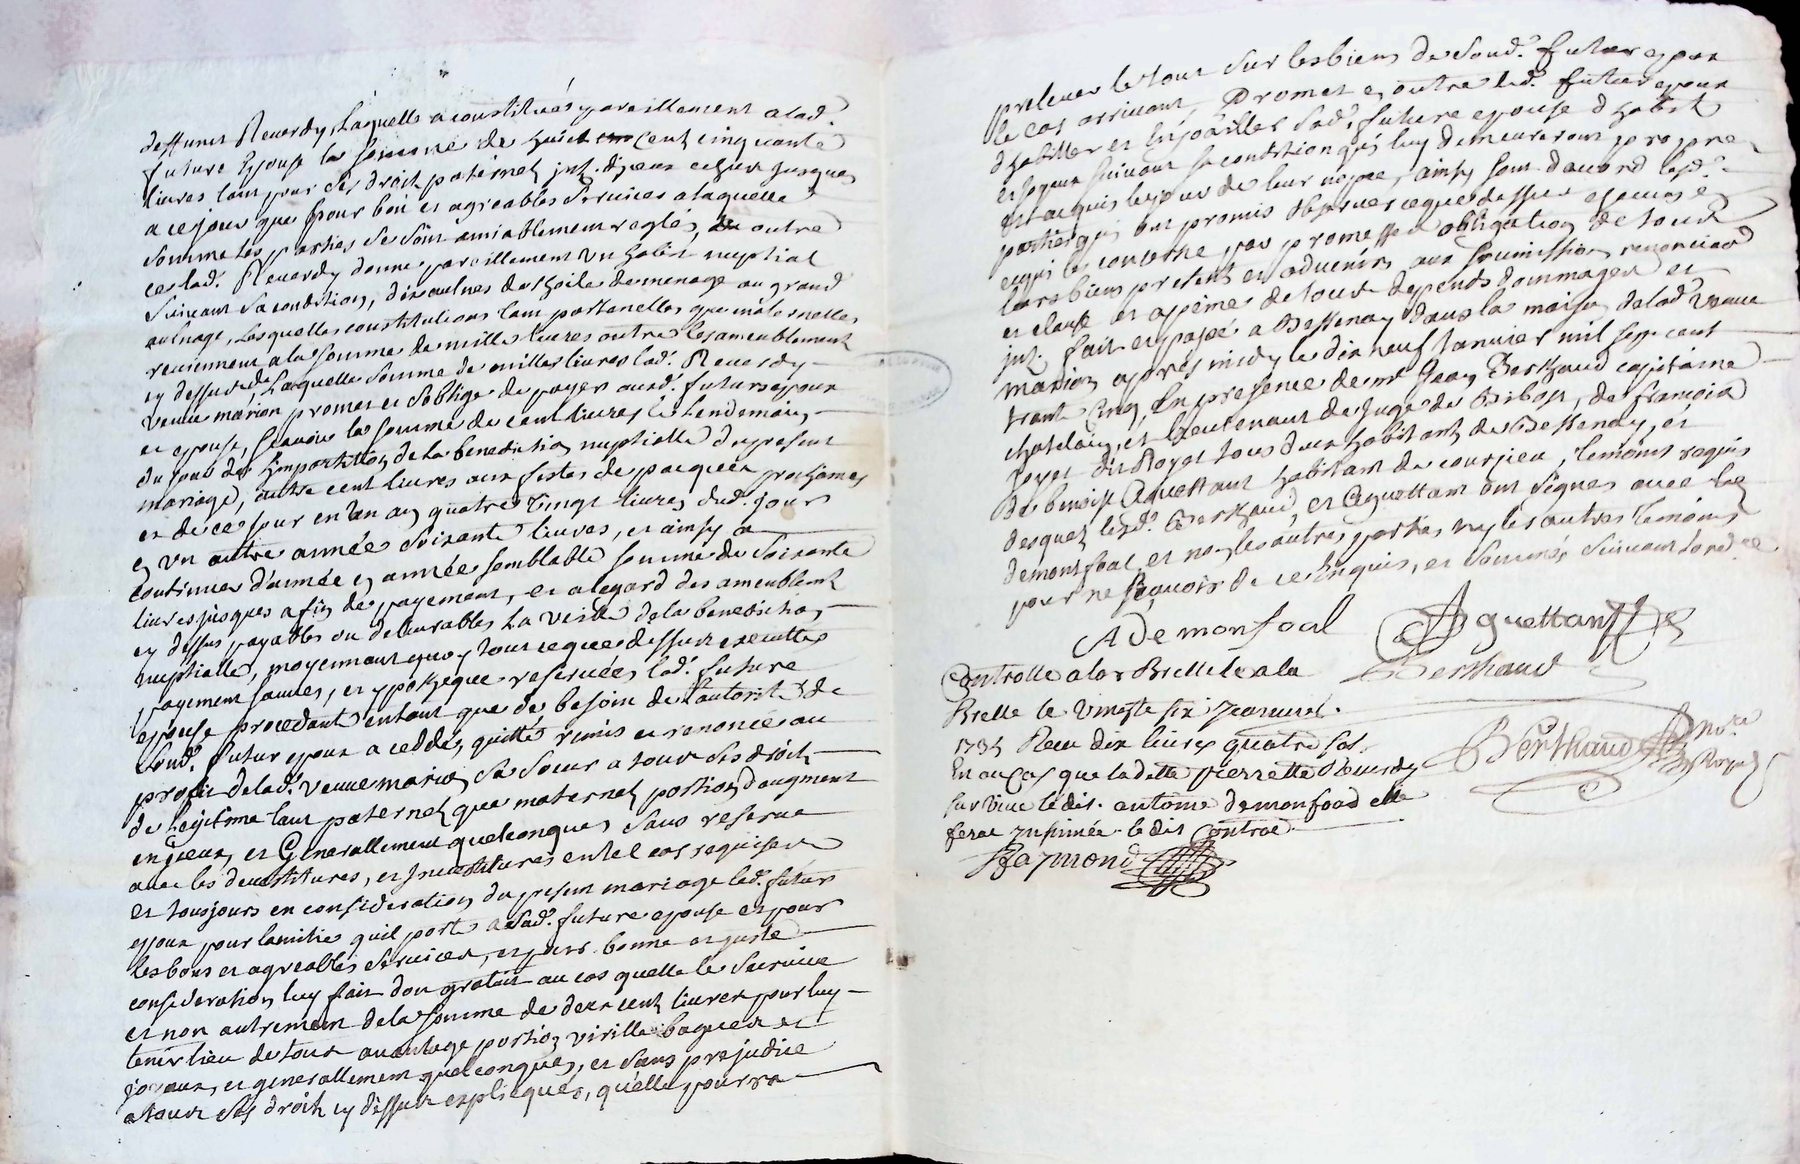 deffunct Reverdy, Laquelle a constitué pareillement a lad.e
future Epouse la somme de huict cent cinquante
livres tant pour ses droits paternels jusques
a ce jour que pour bons et agreables services a laquelle
somme les parties se sont amiablement reglés, outre
ce lad.e Reverdy donne pareillement un habit nuptial
suivant sa condition, dix aulnes de thoile de menage au grand
aulnage, Lesquelles constitutions tant paternelles que maternelles
reviennent a la somme de mille livres outre les ameublement
cy dessus, Laquelle somme de milles livres lad.e Reverdy
veuve marion promet et s'oblige de payer aud. futurs epoux
et epouse, scavoir la somme de cent livres le Lendemain
du jour de l'impartition de la benediction nuptialle du present
mariage, autre cent livres aux festes de pacques prochaines
et de ce jour en un an quatre vingt livres dud. jour
en un autre année soixante livres, et ainsy a
continuer d'année en année semblable somme de soixante
livres jusques a fin de payement, et a legard des ameublement
cy dessus payables ou delivrables La veille de la benediction
nuptialle, moyennant quoy tout ce que dessus executté
payement sauves, et ypotheque reservées lad.e future
epouse procedant entant que de besoin de l'autorité de
sond. futur epoux a ceddé, quitté remis et renoncé au
profit de lad.e veuve marion sa soeur a tous ses droits
de Legitime tant paternel que maternel portion d'augment
et Generallement quelconques sans reserve
avec les devestitures, et investitures en tel cas requises
et tousjours en consideration du present mariage led. futur
epoux pour lamitie quil porte a sad.e future epouse et pour
les bons et agreables services, et pure bonne et juste
consideration luy fait don gratuit au cas quelle le survive
et non autrement de la somme de deux cent livres pour luy
tenir lieu de tout avantage portion virille bagues et
joyaux, et generallement quelconques, et sans prejudice
a tous ses droits cy dessus expliqués, qu'elle pourra
prelever le tout sur les biens de sond. futur epoux
le cas arrivant, Promet en outre led. futur epoux
d'habiller et Enjoailler sad.e future epouse d'habits
et joyaux suivant sa condition qui luy demeureront propre
et acquis le jour de leur nopce, ainsy sont d'acord lesd.
parties qui ont promis observer ce que dessus chacune en
ce qui les concerne par promesse obligation de tous
leurs biens presents et advenirs aux soumissions, renonciaons
et clause et a peines de tous depends dommages et
int. fait et passé a Bessenay dans la maison de lad. veuve
marion apres midy le dix neuf janvier mil sept cent
trente cinq, En presence de mr Jean Berthaud capitaine
chatelain, et Lieutenant de juge de Bibost, de francois
Royer dit Royer tous deux habitants de Bessenay, et
de benoist Aguettant habitant de courzieu, temoins requis
desquels lesd. Berthaud, et Aguettant ont signés avec led.
demonfoal et non les autres parties ny les autres temoins
pour ne scavoir de ce Enquis, et sommés suivant l'ord.ce
A Demonfoal Aguettant
Berthaud
Controllé a la Brelle le ala
Brelle le vingte six jeanvié.
1735 Receu dix livres quatre sol.
En au cas que ladette pierrette Reverdy
survive le dit. antoine demonfoad elle
ferae Insinuée le dit Contrac
Raymond
Berthaud No.re
Royal